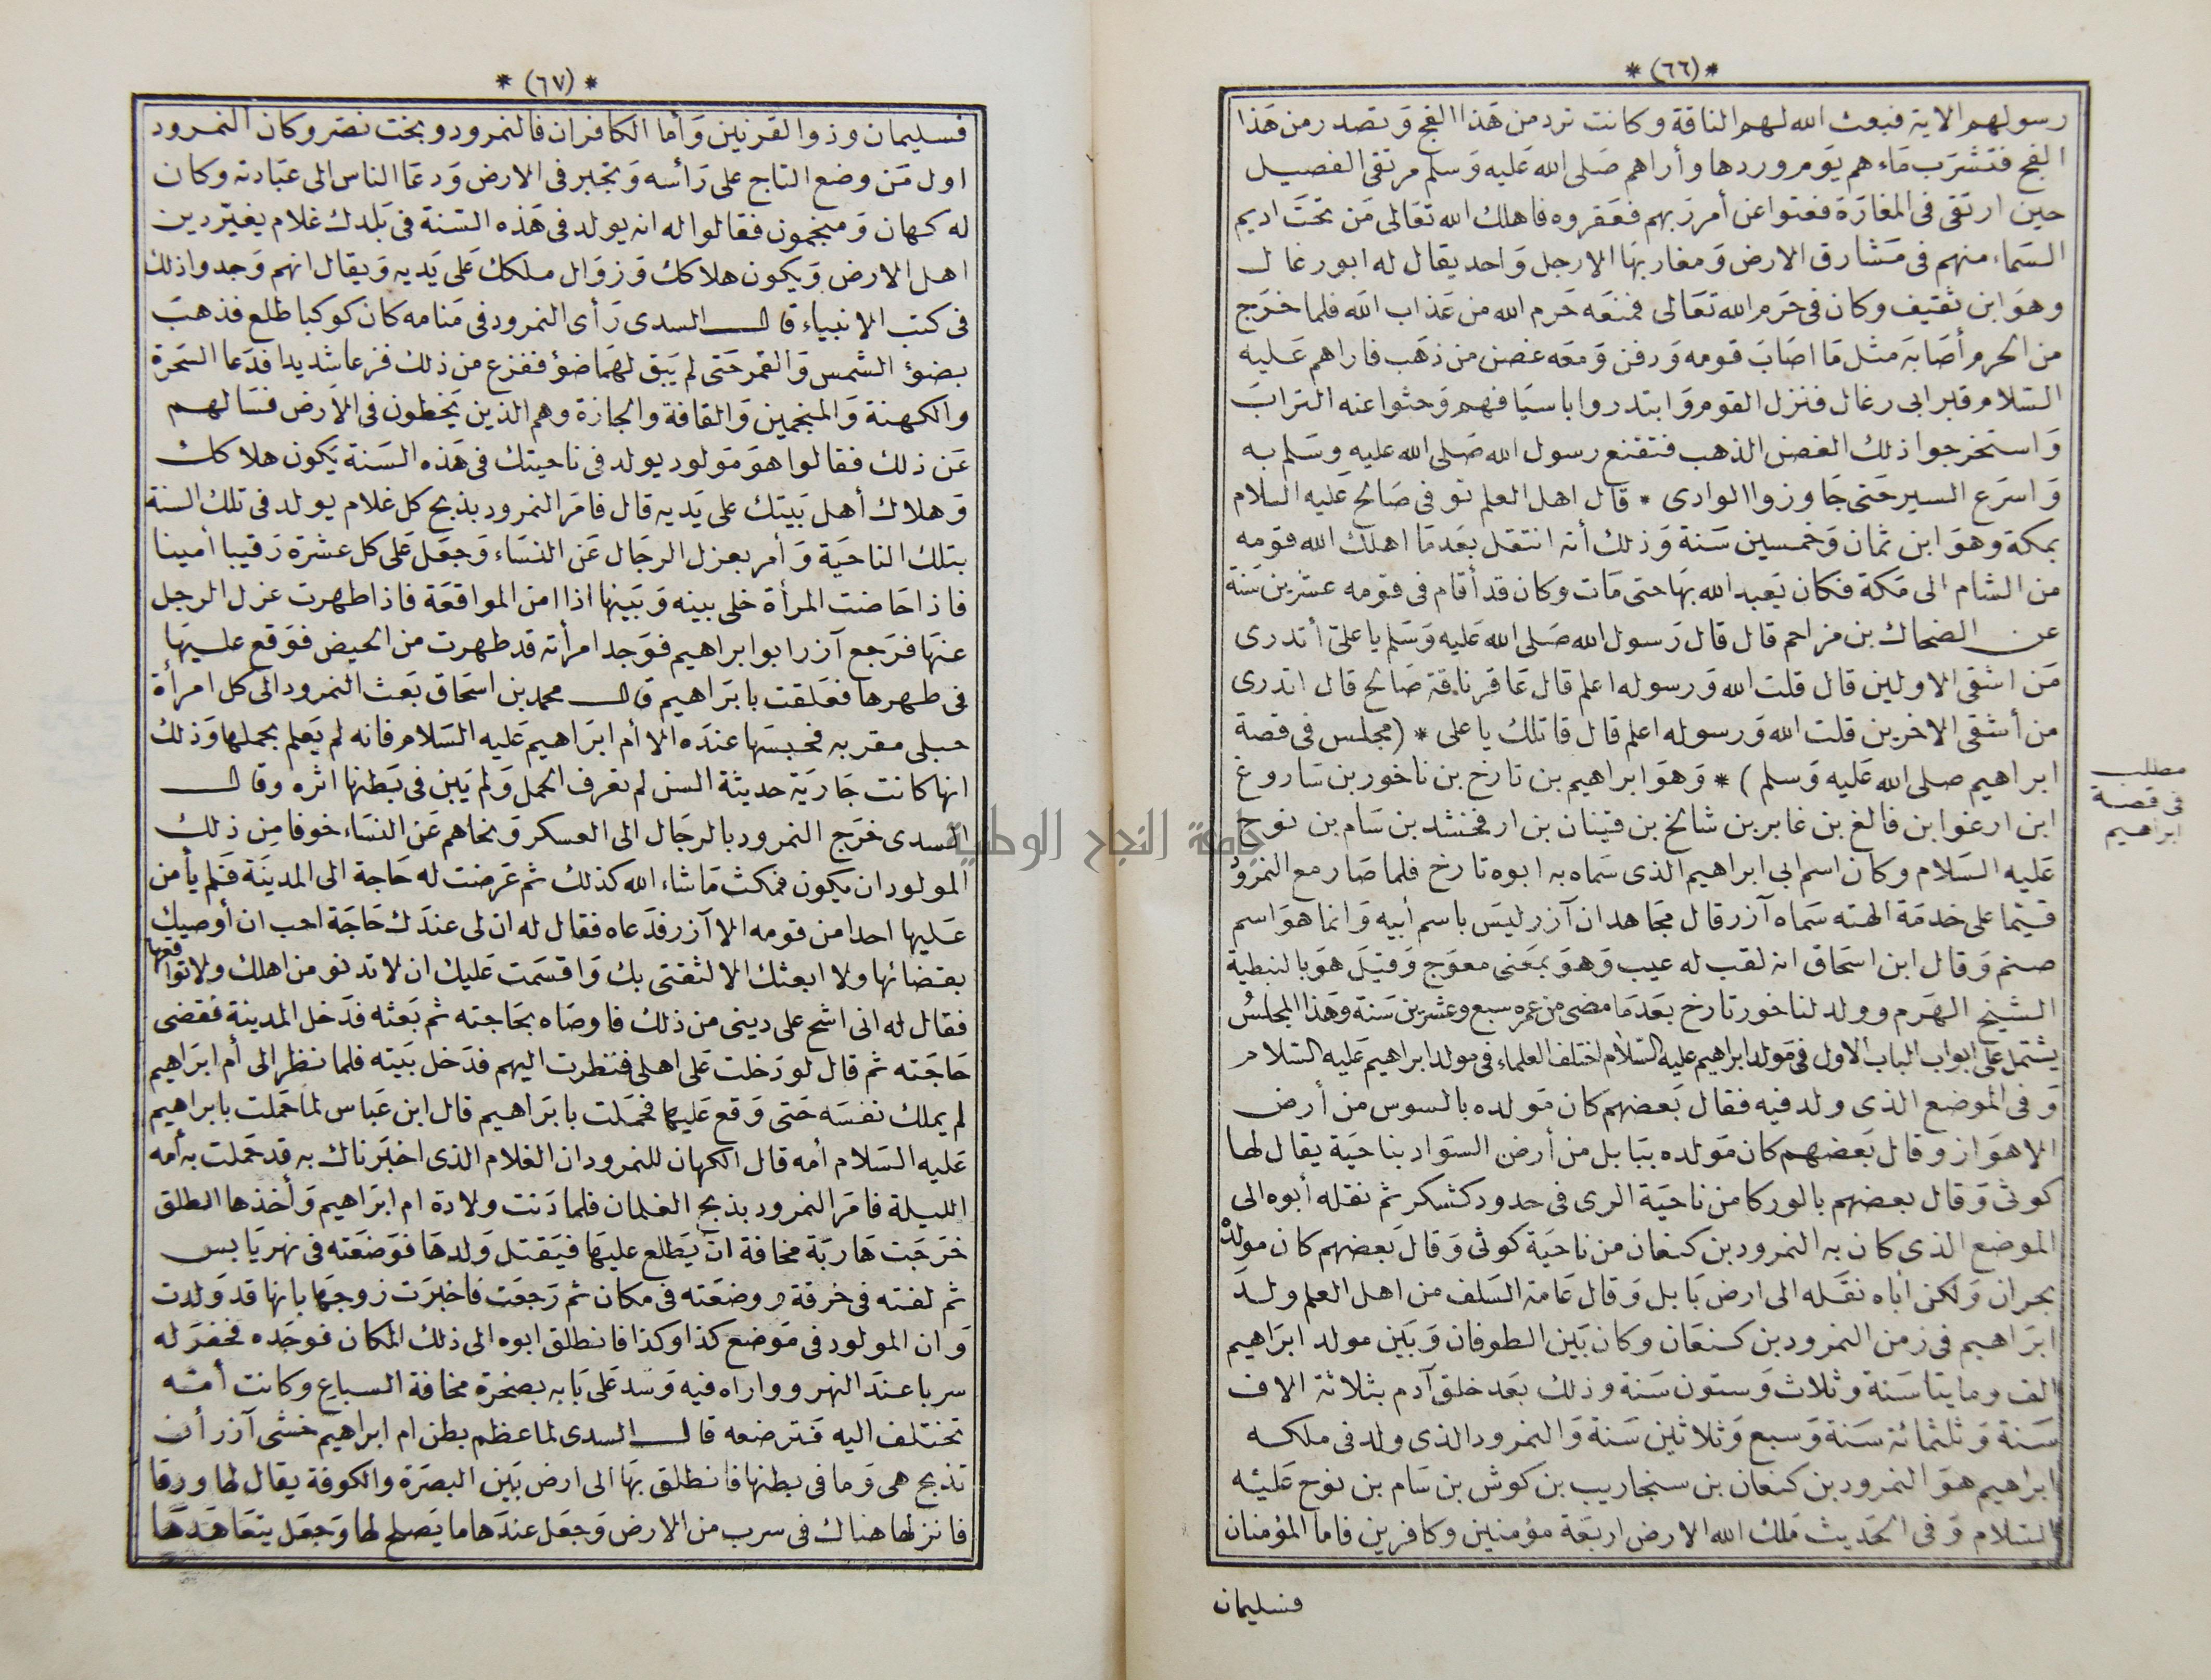 * (٦٦) *
رسولهم الاية فبعث الله لهم الناقة وكانت ترد من هذا الفج وتصدر من هذا
الفج فتشرب ماءهم يوم وردها وأراهم صلى الله عليه وسلم مرتقى الفصيل
حين ارتقى في المغارة فعتوا عن أمر ربهم فعقروه فاهلك الله تعالى من تحت اديم
السماء منهم في مشارق الارض ومغاربها الا رجل واحد يقال له ابو رغال
وهو ابن ثقيف وكان في حرم الله تعالى فمنعه حرم الله من عذاب الله فلما خرج
من الحرم أصابه مثل ما اصاب قومه ودفن ومعه غصن من ذهب فاراهم عليه
السلام قبر ابى رغال فنزل القوم وابتدروا باسيافهم وحثوا عنه التراب
واستخرجوا ذلك الغصن الذهب فتقنع رسول الله صلى الله عليه وسلم به
واسرع السير حتى جاوزوا الوادى * قال اهل العلم توفى صالح عليه السلام
بمكة وهو ابن ثمان وخمسين سنة وذلك أنه انتقل بعد ما اهلك الله قومه
من الشام الى مكة فكان يعبد الله بها حتى مات وكان قد أقام في قومه عشرين سنة
عن الضحاك بن مزاحم قال قال رسول الله صلى الله عليه وسلم يا على أتدرى
من اشقى الاولين قال قلت الله ورسوله اعلم قال عاقر ناقة صالح قال اتدرى
من أشقى الاخرين قلت الله ورسوله اعلم قال قاتلك يا على * (مجلس في قصة
ابراهيم صلى الله عليه وسلم) * وهو ابراهيم بن تارخ بن ناخور بن ساروغ
ابن ارغوا بن فالغ بن غابر بن شالخ بن قينان بن ارفخشد بن سام بن نوح
عليه السلام وكان اسم ابى ابراهيم الذى سماه به ابوه تارخ فلما صار مع النمرود
قيما على خدمة الهته سماه آزر قال مجاهد ان آزر ليس باسم أبيه وانما هو اسم
صنم وقال ابن اسحاق انه لقب له عيب وهو بمعنى معوج وقيل هو بالنبطية
الشيخ الهرم وولد لناخور تارخ بعد ما مضى من عمره سبع وعشرين سنة وهذا المجلس
يشتمل على ابواب الباب الاول في مولد ابراهيم عليه السلام اختلف العلماء في مولد ابراهيم عليه السلام
وفى الموضع الذى ولد فيه فقال بعضهم كان مولده بالسوس من أرض
الاهواز وقال بعضهم كان مولده ببابل من أرض السواد بناحية يقال لها
كوثى وقال بعضهم بالوركا من ناحية الرى في حدود كشكر ثم نقله أبوه الى
الموضع الذى كان به النمرود بن كنعان من ناحية كوثى وقال بعضهم كان مولده
بحران ولكن أباه نقله الى ارض بابل وقال عامة السلف من اهل العلم ولد
ابراهيم في زمن النمرود بن كنعان وكان بين الطوفان وبين مولد ابراهيم
الف ومايتا سنة وثلاث وستون سنة وذلك بعد خلق آدم بثلاثة الاف
سنة وثلثمائة سنة وسبع وثلاثين سنة والنمرود الذى ولد في ملكه
ابراهيم هو النمرود بن كنعان بن سنجاريب بن كوش بن سام بن نوح عليه
السلام وفى الحديث ملك الله الارض اربعة مؤمنين وكافرين فاما المؤمنان
فسليمان
مطلب
في قصة
ابراهيم
* (٦٧) *
فسليمان وذوا القرنين وأما الكافران فالنمرود وبخت نصر وكان النمرود
اول من وضع التاج على رأسه وتجبر في الارض ودعا الناس الى عبادته وكان
له كهان ومنجمون فقالوا له انه يولد في هذه السنة في بلدك غلام يغير دين
اهل الارض ويكون هلاكك وزوال ملكك على يديه ويقال انهم وجدوا ذلك
في كتب الانبياء قال السدى رأى النمرود في منامه كان كوكبا طلع فذهب
بضوء الشمس والقمر حتى لم يبق لهما ضوء ففزع من ذلك فزعا شديدا فدعا السحرة
والكهنة والمنجمين والقافة والجازة وهم الذين يخطون في الارض فسالهم
عن ذلك فقالوا هو مولود يولد في ناحيتك في هذه السنة يكون هلاكك
وهلاك أهل بيتك على يديه قال فامر النمرود بذبح كل غلام يولد في تلك السنة
بتلك الناحية وأمر بعزل الرجال عن النساء وجعل على كل عشرة رقيبا أمينا
فاذا حاضت المرأة خلى بينه وبينها اذا امن المواقعة فاذا طهرت عزل الرجل
عنها فرجع آزر ابو ابراهيم فوجد امرأته قد طهرت من الحيض فوقع عليها
في طهرها فعلقت بابراهيم قال محمد بن اسحاق بعث النمرود الى كل امرأة
حبلى مقربه فحبسها عنده الا أم ابراهيم عليه السلام فانه لم يعلم بحملها وذلك
انها كانت جارية حديثة السن لم تعرف الحمل ولم يبن في بطنها اثره وقال
السدى خرج النمرود بالرجال الى العسكر ونحاهم عن النساء خوفا من ذلك
المولود ان يكون فمكث ما شاء الله كذلك ثم عرضت له حاجة الى المدينة فلم يأمن
عليها احدا من قومه الا آزر فدعاه فقال له ان لى عندك حاجة احب ان أوصيك
بقضائها ولا ابعثك الا لثقتى بك واقسمت عليك ان لا تدنو من اهلك ولا تواقعها
فقال له انى اشح على دينى من ذلك فاوصاه بحاجته ثم بعثه فدخل المدينة فقضى
حاجته ثم قال لو دخلت على اهلى فنظرت اليهم فدخل بيته فلما نظر الى أم ابراهيم
لم يملك نفسه حتى وقع عليها فحملت بابراهيم قال ابن عباس لما حملت بابراهيم
عليه السلام أمه قال الكهان للنمرود ان الغلام الذى اخبرناك به قد حملت به أمه
الليلة فامر النمرود بذبح الغلمان فلما دنت ولادة ام ابراهيم وأخذها الطلق
خرجت هاربة مخافة ان يطلع عليها فيقتل ولدها فوضعته في نهر يابس
ثم لفته في خرقة ووضعته في مكان ثم رجعت فاخبرت زوجها بانها قد ولدت
وان المولود في موضع كذا وكذا فانطلق ابوه الى ذلك المكان فوجده فحفر له
سربا عند النهر وواراه فيه وسد على بابه بصخرة مخافة السباع وكانت أمه
تختلف اليه فترضعه قال السدى لما عظم بطن ام ابراهيم خشى آزر أن
تذبح هى وما في بطنها فانطلق بها الى ارض بين البصرة والكوفة يقال لها ورقا
فانزلها هناك في سرب من الارض وجعل عندها ما يصلح لها وجعل يتعاهدها
جامعة النجاح الوطنية